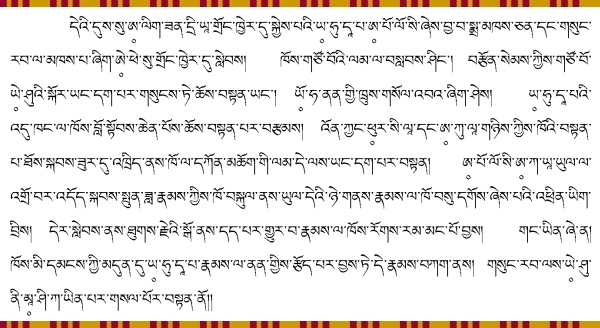 དེའི་དུས་སུ་ཨ༷་ལེག་ཟན་དྲི་ཡཱ་གྲོང་ཁྱེར་དུ་སྐྱེས་པའི་ཡ༷་ཧུ་དཱ་པ་ཨ༷་པོ་ལོ་སི་ཞེས་བྱ་བ་སྨྲ་མཁས་ཅན་དང་གསུང་
རབ་ལ་མཁས་པ་ཞིག་ཨེ༷་ཕེ་སུ་གྲོང་ཁྱེར་དུ་སླེབས། ཁོས་གཙོ་བོའི་ལམ་ལ་བསླབས་ཤིང་། བརྩོན་སེམས་ཀྱིས་གཙོ་བོ་
ཡེ༷་ཤུའི་སྐོར་ཡང་དག་པར་གསུངས་ཏེ་ཆོས་བསྟན་ཡང་། ཡོ༷་ཧ་ནན་གྱི་ཁྲུས་གསོལ་འབའ་ཞིག་ཤེས། ཡ༷་ཧུ་དཱ་པའི་
འདུ་ཁང་ལ་ཁོས་བློ་སྟོབས་ཆེན་པོས་ཆོས་བསྟན་པར་བརྩམས། འོན་ཀྱང་ཕུར༷་སི་ལཱ་དང་ཨ༷་ཀུ་ལཱ་གཉིས་ཀྱིས་ཁོའི་བསྟན་
པ་ཐོས་སྐབས་ཟུར་དུ་འཁྲིད་ནས་ཁོ་ལ་དཀོན་མཆོག་གི་ལམ་དེ་ལས་ཡང་དག་པར་བསྟན། ཨ༷་པོ་ལོ་སི་ཨ༷་ཀ་ཡཱ་ཡུལ་ལ་
འགྲོ་བར་འདོད་སྐབས་སྤུན་ཟླ་རྣམས་ཀྱིས་ཁོ་བསྐུལ་ནས་ཡུལ་དེའི་ཉེ་གནས་རྣམས་ལ་ཁོ་བསུ་དགོས་ཞེས་པའི་འཕྲིན་ཡིག་
བྲིས། དེར་སླེབས་ནས་ཐུགས་རྗེའི་སྒོ་ནས་དད་པར་གྱུར་བ་རྣམས་ལ་ཁོས་རོགས་རམ་མང་པོ་བྱས། གང་ཡིན་ཞེ་ན།
ཁོས་མི་དམངས་ཀྱི་མདུན་དུ་ཡ༷་ཧུ་དཱ་པ་རྣམས་ལ་ནན་གྱིས་རྩོད་པར་བྱས་ཏེ་དེ་རྣམས་བཀག་ནས། གསུང་རབ་ལས་ཡེ༷་ཤུ་
ནི་མཱ༷་ཤི་ཀ་ཡིན་པར་གསལ་པོར་བསྟན་ནོ།།